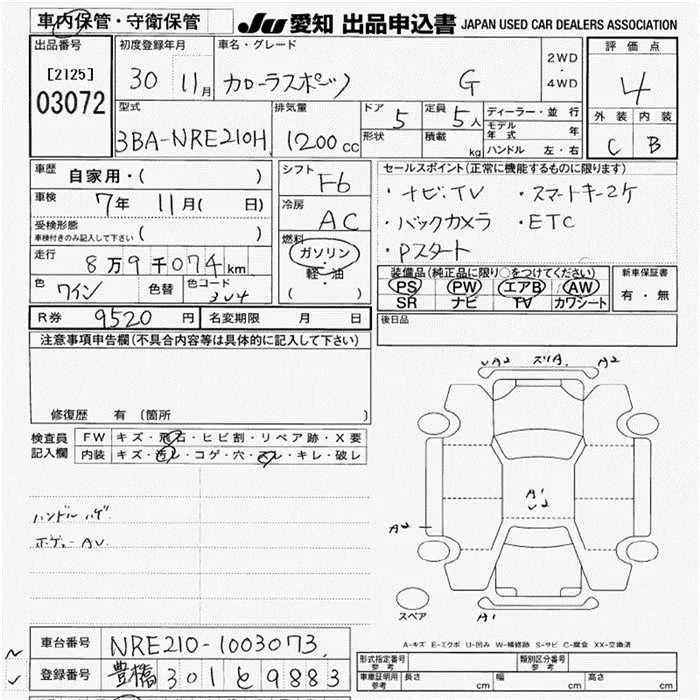 車内保管・守衛保管 JU 愛知 出品申込書 JAPAN USED CAR DEALERS ASSOCIATION
出品番号 初度登録年月 車名・グレード 2WD・4WD 評価点
[2125] 30 11月 カローラスポーツ G 4
03072
型式 排気量 ドア 5 定員 5人 ディーラー・並行 外装 内装
3BA-NRE210H 1200cc 形状 積載 kg モデル年式 年 C B
ハンドル 左・右
車歴 自家用・( ) シフト F6 セールスポイント(正常に機能するものに限ります)
車検 7年 11月( 日) 冷房 AC ・ナビ,TV ・スマートキー2ケ
受検形態 車検付きのみ記入して下さい ( ) ・バックカメラ ・ETC
走行 8万9千074km 燃料 ガソリン・軽・油 ( ) ・Pスタート
色 ワイン 色替 色コード 3U4 装備品(純正品に限り○をつけてください) 新車保証書
PS PW エアB AW 有・無
SR ナビ TV カワシート
R券 9520円 名変期限 月 日 後日品
注意事項申告欄(不具合内容等は具体的に記入して下さい)
修復歴 有(箇所 )
検査員記入欄 FW キズ・飛石・ヒビ割・リペア跡・X要
内装 キズ・汚レ・コゲ・穴・スレ・キレ・破レ
ハンドル ハゲ
ボディー AU
UA2 ズリA. A2
A1
U2
A2
A1
スペア
A-キズ E-エクボ U-凹み W-補修跡 S-サビ C-腐食 XX-交換済
車台番号 NRE210-1003073
登録番号 豊橋 301 と 9883
形式指定番号 参考 類別区分番号 参考
車庫証明用 参考 長さ cm 幅 cm 高さ cm